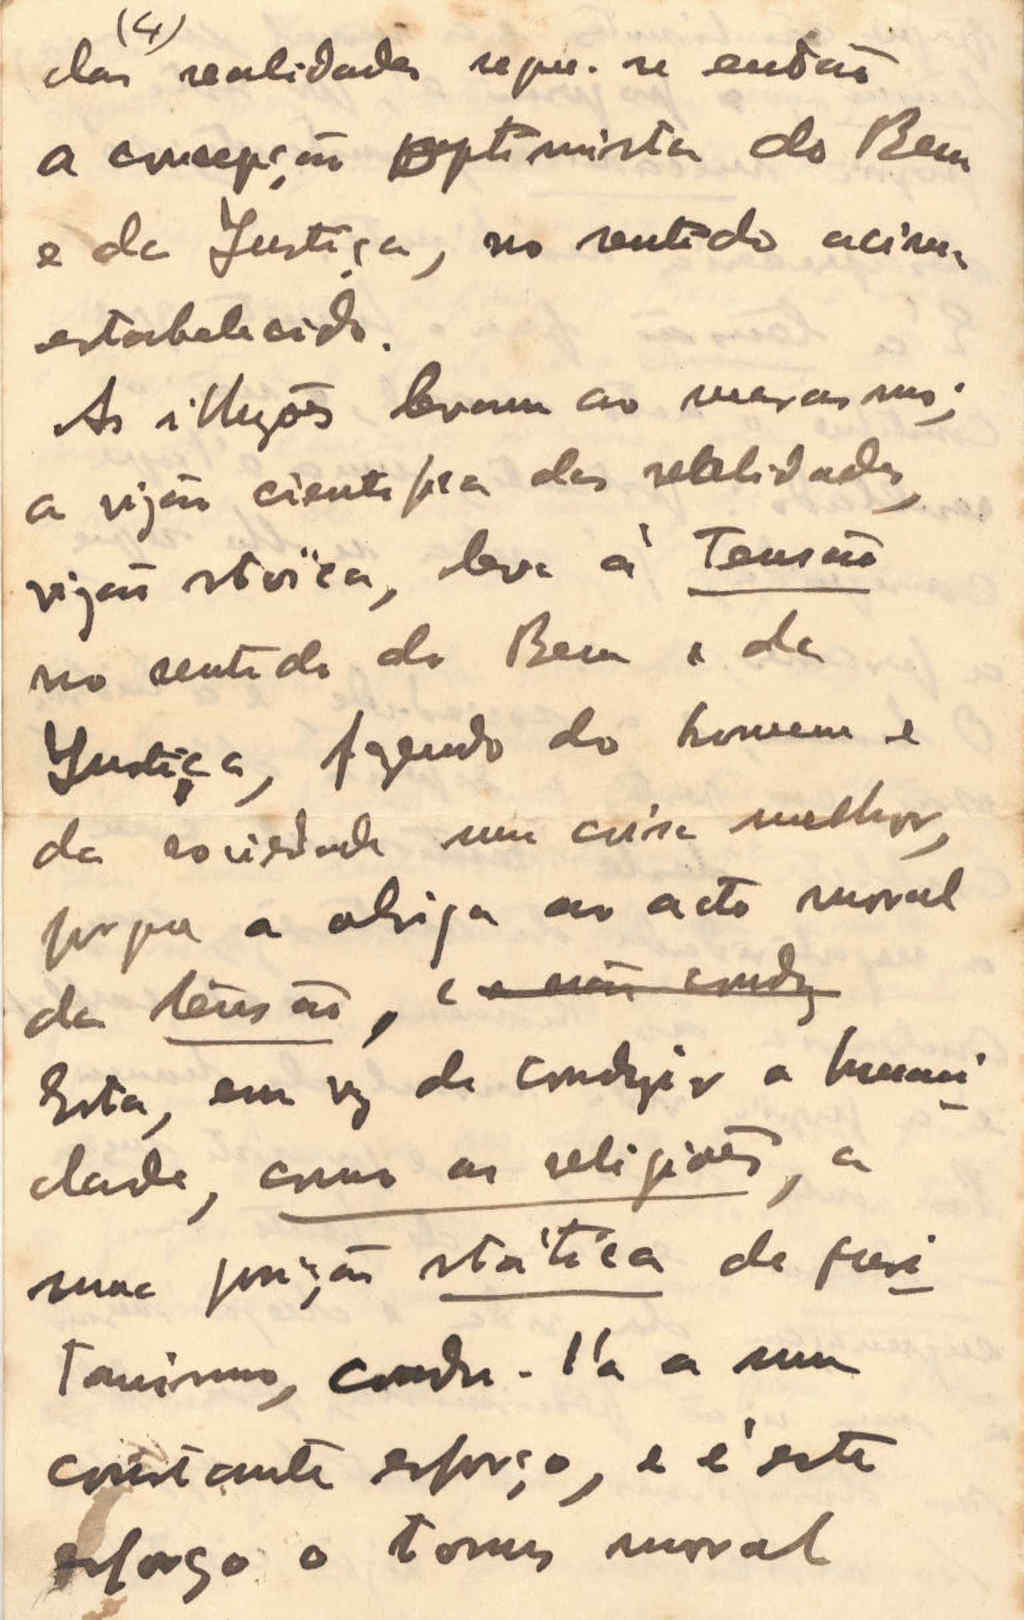 (4)
das realidades segue-se então
a concepção optimista do Bem
e da Justiça, no sentido acima
estabelecido.
As illuzões levam ao marasmo;
a vizão cientifica das realidades,
vizão stoïca, leva à Tensão
no sentido do Bem e da
Justiça, fazendo do homem e
da sociedade uma coisa melhor,
porque a obriga ao acto moral
da tensão, e e não conduz
Esta, em vez de conduzir a humani
dade, como as religiões, a
uma posição státíca de puri
tanismo, condu-l'a a um
constante esforço, e é este
esforço o tonus moral